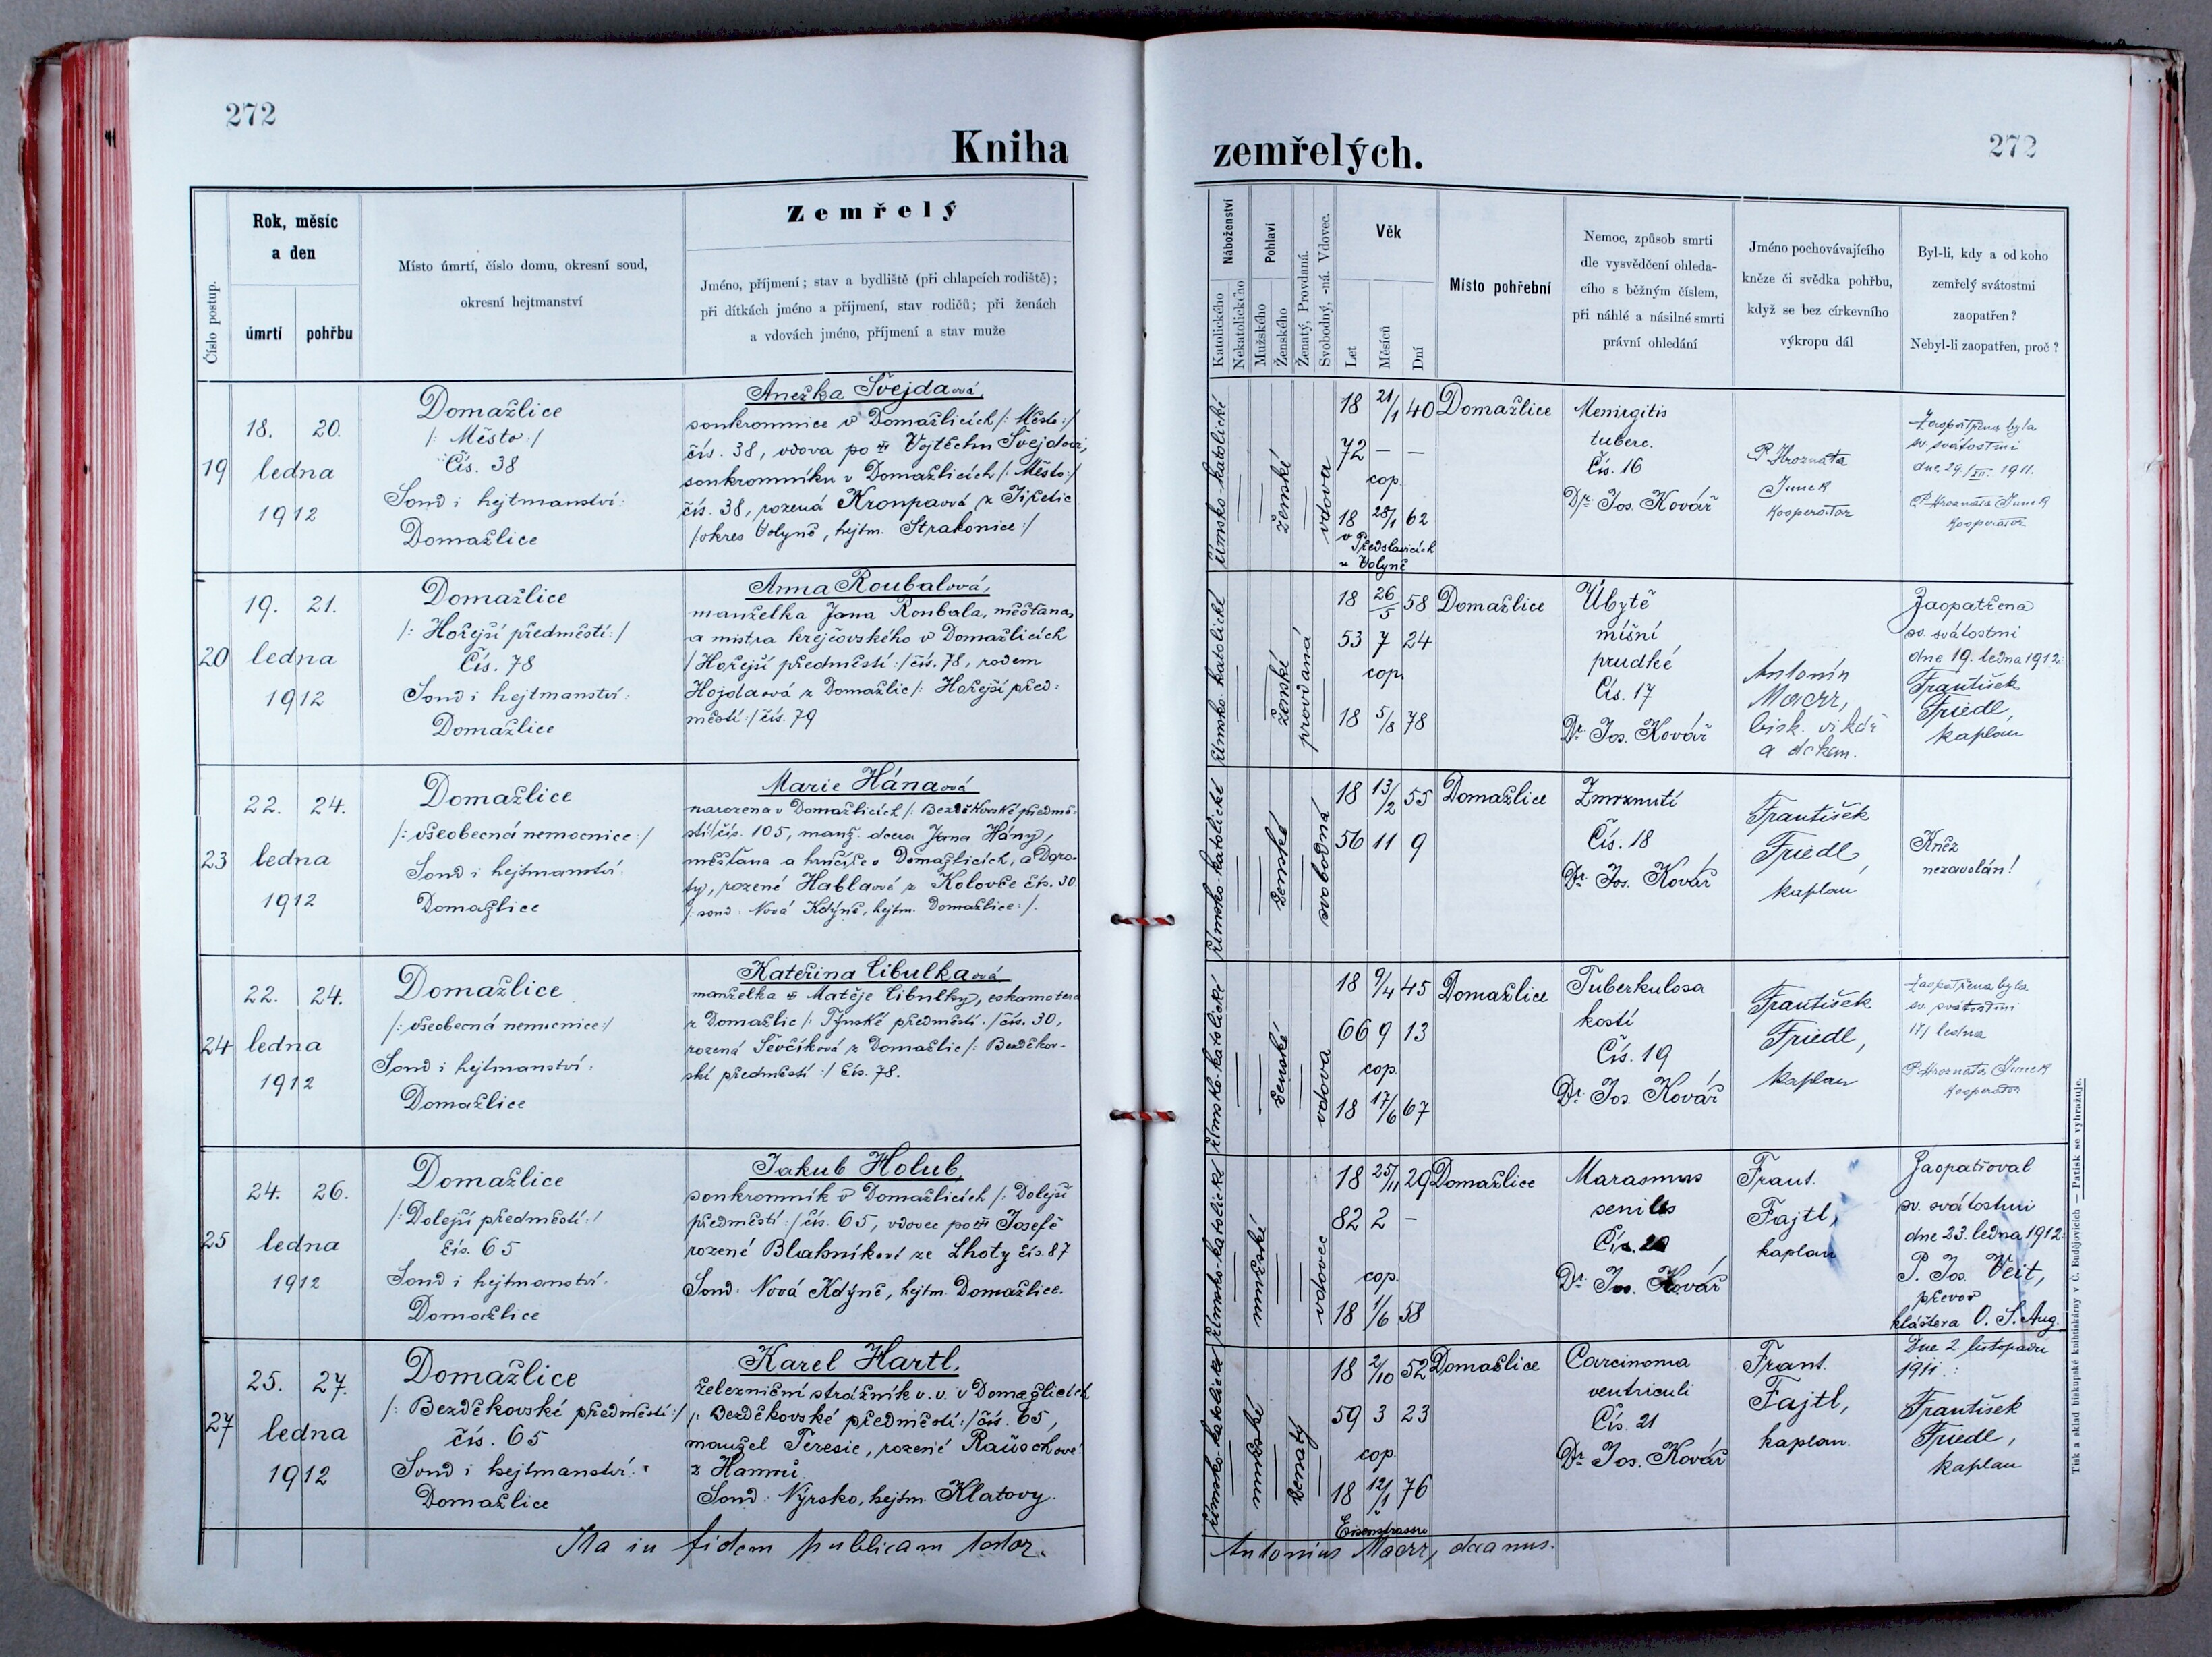 272
Kniha
Číslo postup.
Rok, měsíc
a den
úmrtí
pohřbu
Místo úmrtí, číslo domu, okresní soud,
okresní hejtmanství
Zemřelý
Jméno, příjmení; stav a bydliště (při chlapcích rodiště);
při dítkách jméno a příjmení, stav rodičů; při ženách
a vdovách jméno, příjmení a stav muže
19
18. 20.
ledna
1912
Domažlice
/: Město :/
Čís. 38
Soud i hejtmanství:
Domažlice
Anežka Švejdaová,
soukromnice v Domažlicích /: Město :/
čís. 38, vdova po † Vojtěchu Švejdovi,
soukromníku v Domažlicích /: Město :/
čís. 38, rozená Kroupaová z Jiřetic
/okres Volyně, hejtm. Strakonice :/
20
19. 21.
ledna
1912
Domažlice
/: Hořejší předměstí: /
Čís. 78
Soud i hejtmanství:
Domažlice
Anna Roubalová,
manželka Jana Roubala, měšťana,
a mistra krejčovského v Domažlicích
/ Hořejší předměstí :/ čís. 78, rodem
Hojdaová z Domažlic /: Hořejší před:
městí :/ čís. 79
23
22. 24.
ledna
1912
Domažlice
/: všeobecná nemocnice :/
Soud i hejtmanství:
Domažlice
Marie Hánaová
narozena v Domažlicích /: Bezděkovské předmě-
stí / čís. 105, manž. dcera Jana Hány,
měšťana a hrnčíře v Domažlicích, a Doro-
ty, rozené Hablaové z Kolovče čís. 30
/: soud: Nová Kdýně, hejtm. Domažlice :/.
24
22. 24.
ledna
1912
Domažlice
/: všeobecná nemocnice :/
Soud i hejtmanství:
Domažlice
Kateřina Cibulkaová
manželka † Matěje Cibulky, eskamotera
z Domažlic /: Týnské předměstí :/ čís. 30,
rozená Ševčíková z Domažlic /: Bezděkov-
ské předměstí :/ čís. 78.
25
24. 26.
ledna
1912
Domažlice
/: Dolejší předměstí: /
čís. 65
Soud i hejtmanství:
Domažlice
Jakub Holub,
soukromník v Domažlicích /: Dolejší
předměstí :/ čís. 65, vdovec po † Josefě
rozené Blahníkové ze Lhoty čís. 87
Soud: Nová Kdýně, hejtm. Domažlice.
27
25. 27.
ledna
1912
Domažlice
/: Bezděkovské předměstí :/
čís. 65
Soud i hejtmanství:
Domažlice
Karel Hartl,
železniční strážník v. v. v Domažlicích
/: Bezděkovské předměstí :/ čís. 65,
manžel Teresie, rozené Rauschové
z Hamrů.
Soud: Nýrsko, hejtm. Klatovy.
Ita in fidem publicam testor.
272
zemřelých.
Náboženství
Katolického
Nekatolického
Pohlaví
Mužského
Ženského
Ženatý, Provdaná.
Svobodný, -ná. Vdovec.
Věk
Let
Měsíců
Dní
Místo pohřební
Nemoc, způsob smrti
dle vysvědčení ohleda-
cího s běžným číslem,
při náhlé a násilné smrti
právní ohledání
Jméno pochovávajícího
kněze či svědka pohřbu,
když se bez církevního
výkropu dál
Byl-li, kdy a od koho
zemřelý svátostmi
zaopatřen?
Nebyl-li zaopatřen, proč?
římsko-katolické
ženské
vdova
18 21/1 40
72 – –
cop.
18 28/1 62
v Předslavicích
u Volyně
Domažlice
Meningitis
tuberc.
Čís. 16
Dr. Jos. Kovář
P. Hroznata
Junek
kooperator
Zaopatřena byla
sv. svátostmi
dne 29./XII. 1911.
P. Hroznata Junek
kooperator
římsko-katolické
ženské
provdaná
18 26/5 58
53 7 24
cop.
18 5/8 78
Domažlice
Úbytě
míšní
prudké
Čís. 17
Dr. Jos. Kovář
Antonín
Maerr,
bisk. vikář
a děkan.
Zaopatřena
sv. svátostmi
dne 19. ledna 1912:
František
Friedl,
kaplan
římsko-katolické
ženské
svobodná
18 13/2 55
56 11 9
Domažlice
Zmrznutí
Čís. 18
Dr. Jos. Kovář
František
Friedl,
kaplan
Kněz
nezavolán!
římsko-katolické
ženské
vdova
18 9/4 45
66 9 13
cop.
18 17/6 67
Domažlice
Tuberkulosa
kostí
Čís. 19
Dr. Jos. Kovář
František
Friedl,
kaplan
Zaopatřena byla
sv. svátostmi
17/ ledna
P. Hroznata Junek
kooperator
římsko-katolické
mužské
vdovec
18 25/11 29
82 2 –
cop.
18 1/6 58
Domažlice
Marasmus
senilis
Čís. 20
Dr. Jos. Kovář
Frant.
Fajtl,
kaplan
Zaopatřoval
sv. svátostmi
dne 23. ledna 1912:
P. Jos. Veit,
převor
kláštera O. S. Aug.
římsko-katolické
mužské
ženatý
18 2/10 52
59 3 23
cop.
18 12/1 76
Eisenstrasse
Domažlice
Carcinoma
ventriculi
Čís. 21
Dr. Jos. Kovář
Frant.
Fajtl,
kaplan.
Dne 2. listopadu
1911.:
František
Friedl,
kaplan
Antonius Maerr, decanus.
Tisk a sklad biskupské knihtiskárny v Č. Budějovicích — Patisk se vyhražuje.